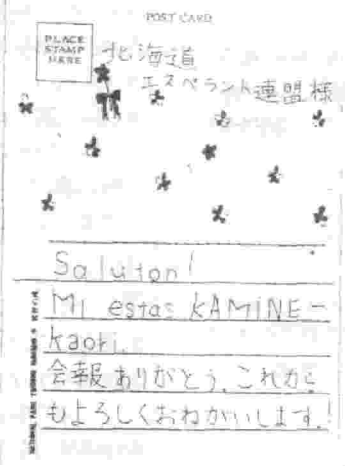 POST CARD
PLACE
STAMP
HERE
北海道
エスペラント連盟様
Saluton!
Mi estas KAMINE-
kaori.
会報ありがとう。これから
もよろしくおねがいします!